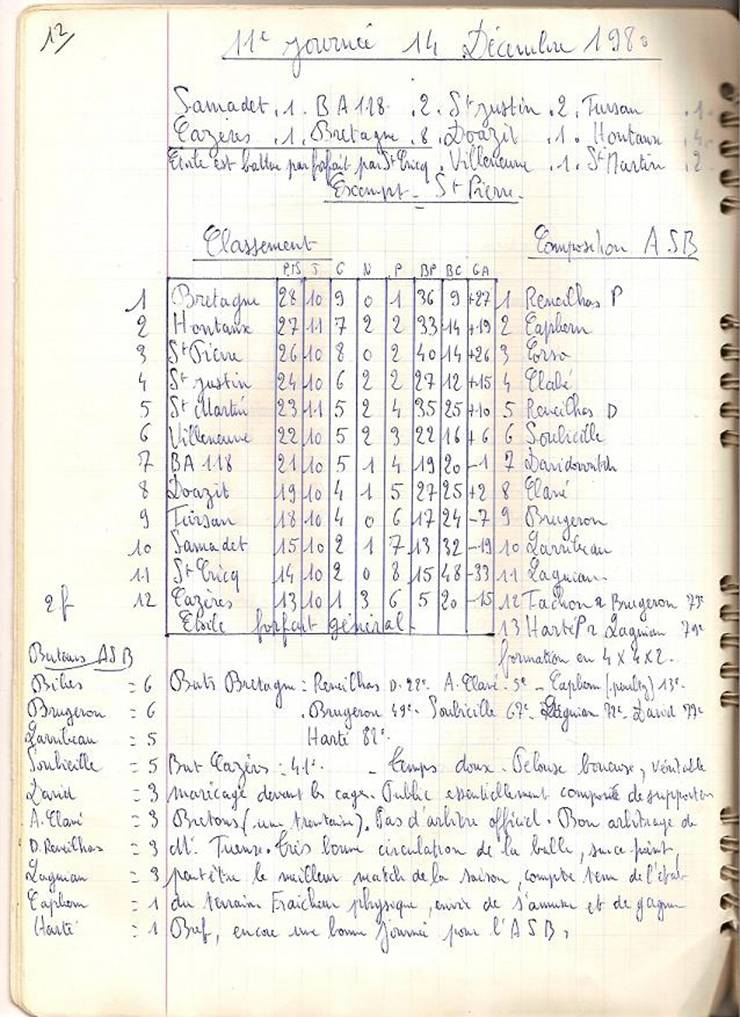 12
11e journée 14 Décembre 1980
Samadet . 1 . BA 118 . 2 . St Justin . 2 . Tursan . 1
Cazères . 1 . Bretagne . 8 . Doazit . 1 . Hontanx . 4
Etoile est battue par forfait par St Cricq . Villeneuve . 1 . St Martin . 2
Exempt - St Pierre
Classement Composition ASB
PTS J G N P BP BC GA
1 Bretagne 28 10 9 0 1 36 9 +27 1 Reneilhas P
2 Hontanx 27 11 7 2 2 33 14 +19 2 Capbern
3 St Pierre 26 10 8 0 2 40 14 +26 3 Corso
4 St Justin 24 10 6 2 2 27 12 +15 4
5 St Martin 23 11 5 2 4 35 25 +10 5 Reneilhas D
6 Villeneuve 22 10 5 2 3 22 16 +6 6 Soubieille
7 BA 118 21 10 5 1 4 19 20 -1 7
8 Doazit 19 10 4 1 5 27 25 +2 8 Clavé
9 Tursan 18 10 4 0 6 17 24 -7 9 Brugeron
10 Samadet 15 10 2 1 7 13 32 -19 10 Larribeau
11 St Cricq 14 10 2 0 8 15 48 -33 11 Lagnian
2f 12 Cazères 13 10 1 3 6 5 20 -15 12 Tachon R Brugeron 75e
Etoile forfait général - 13 Harté P r Lagnian 79e
formation en 4 x 4 x 2.
Buteurs ASB
Bihes = 6 Buts Bretagne : Reneilhas D. 22e. A. Clavé . 5e - Capbern (penlty) 13e.
Brugeron = 6 . Brugeron 49e. Soubieille 67e - Lagnian 72e - David 77e
Larribeau = 5 Harté 82e.
Soubieille = 5 But Cazères : 41e. - temps doux. Pelouse boueuse, véritable
David = 3 marécage devant les cages. Public essentiellement composé de supporters
A. Clavé = 3 Bretons (une trentaine). Pas d'arbitre officiel. Bon arbitrage de
D. Reneilhas = 3 M. . Très bonne circulation de la balle, sur ce point,
Lagnian = 3 peut être le meilleur match de la saison, compte tenu de l'état
Capbern = 1 du terrain. Fraîcheur physique, envie de s'amuser et de gagner
Harté = 1 Bref, encore une bonne journée pour l'ASB.